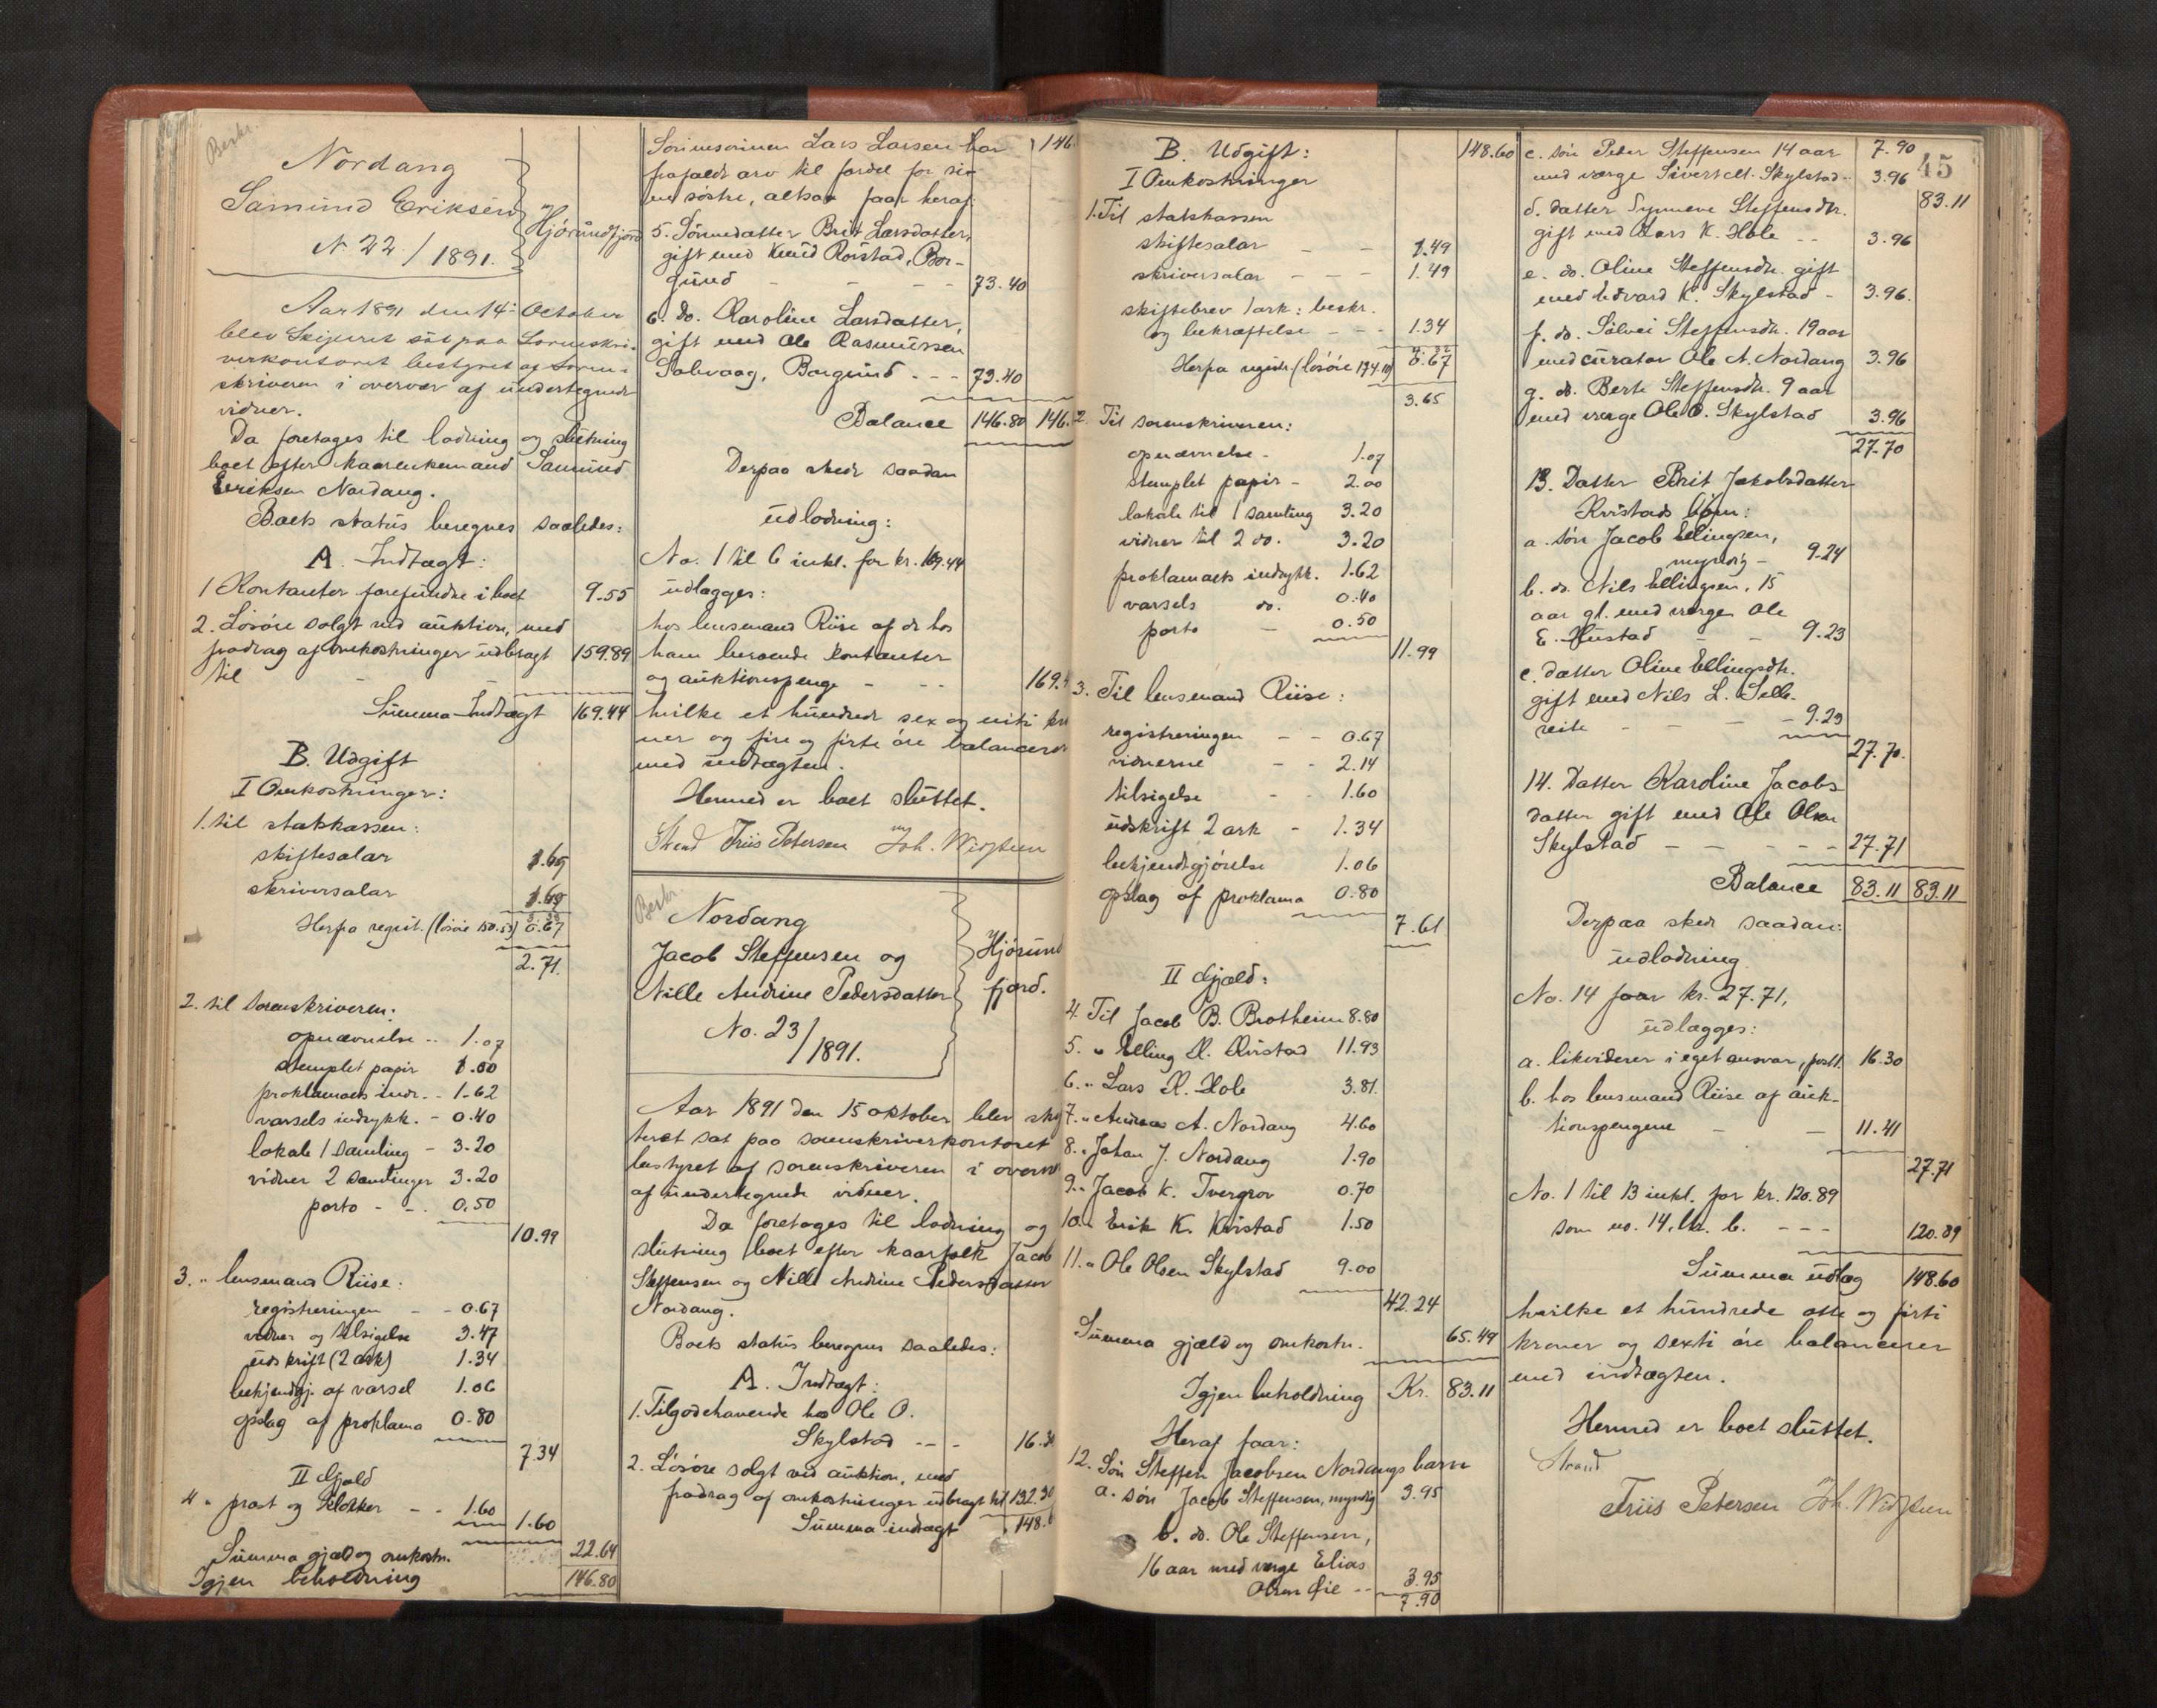 Beskr.
Nordang
Samund Eriksen
N. 22 / 1891.
Hjörundfjord
Aar 1891 den 14de October
blev Skifteret sat paa Sorenskri-
verkontoret bestyret af Soren-
skriveren i overvær af undertegnede
vidner.
Da foretages til lodning og slutning
boet efter kaarenkemand Samund
Eriksen Nordang.
Boets status beregnes saaledes:
A. Indtægt:
1 Kontanter forefundne i boet 9.55
2. Lösöre solgt ved auktion, med
fradrag af omkostninger udbragt 159.89
til
Summa Indtægt 169.44
B. Udgift
I Omkostninger:
1. til statskassen:
skiftesalar 1.69
skriversalar 1.69
Herfra regist. (lösöre 150.53) 0.67
2.71.
2. til sorenskriveren:
opnævnelse .. 1.07
stemplet papir 1.00
proklamaets indr. .. 1.62
varsels indrykk. - 0.40
lokale 1 samling - 3.20
vidner 2 samlinger 3.20
porto - - . 0.50
10.99
3. " lensmand Riise:
registreringen - - 0.67
vidner og tilsigelse 3.47
udskrift (2 ark) 1.34
bekjendtgj. af varsel 1.06
opslag af proklama 0.80
7.34
II Gjæld
4 " prost og klokker - - 1.60
1.60
Summa gjæld og omkostn. 22.64
Igjen beholdning 146.80
Sönnesönnen Lars Larsen har 146.
frafaldt arv til fordel for si-
ne söstre, altsaa faar heraf:
5. Sönnedatter Brit Larsdatter,
gift med Knud Rörstad, Bor-
gund - - - - 73.40
6. do. Karoline Larsdatter,
gift med Ole Rasmussen
Solevaag, Borgund . - - 73.40
Balance 146.80 146.
Derpaa skede saadan
udlodning:
No. 1 til 6 inkl. for kr. 169.44
udlægges:
hos lensmand Riise af de hos
ham beroende kontanter
og auktionspenge - - - 169.4
hvilke et hundrede sex og niti kro
ner og fire og firti öre balancerer
med indtægten.
Hermed er boet sluttet.
Strand Friis Petersen Joh. Widsteen
Beskr.
Nordang
Jacob Steffensen og
Nille Andrine Pedersdatter
No. 23 / 1891.
Hjörund
fjord.
Aar 1891 den 15 oktober blev skif
teret sat paa sorenskriverkontoret
bestyret af sorenskriveren i overvæ
af undertegnede vidner.
Da foretages til lodning og
slutning boet efter kaarfolk Jacob
Steffensen og Nille Andrine Pedersdatter
Nordang.
Boets status beregnes saaledes:
A. Indtægt:
1. Tilgodehavende hos Ole O.
Skylstad - - - 16.30
2. Lösöre solgt ved auktion, med
fradrag af omkostninger udbragt til 132.30
Summa indtægt 148.6
B. Udgift: 148.60
I Omkostninger
1. Til statskassen
skiftesalar - - 1.49
skriversalar - - - 1.49
skiftebrev 1 ark: beskr.
og bekræftelse - - - 1.34
Herfra registr. (lösöre 134.10) 0.67
3.65
2. Til sorenskriveren:
opnævnelse - 1.07
stemplet papir - 2.00
lokale til 1 samling 3.20
vidner til 2 do. 3.20
proklamaets indrykk. 1.62
varsels do. 0.40
porto - 0.50
11.99
3. Til lensmand Riise:
registreringen - - 0.67
vidnerne - - 2.14
tilsigelse - - 1.60
udskrift 2 ark - 1.34
bekjendtgjörelse 1.06
opslag af proklama 0.80
7.61
II Gjæld:
4. Til Jacob B. Brotheim 8.80
5. " Elling K. Kvistad 11.93
6. " Lars K. Hole 3.81.
7. " Andreas A. Nordang 4.60
8. " Johan J. Nordang 1.90
9. " Jacob K. Tvergrov 0.70
10. " Erik K. Kvistad 1.50
11. " Ole Olsen Skylstad 9.00
42.24
Summa gjæld og omkostn. 65.49
Igjen beholdning Kr. 83.11
Heraf faar:
12. Sön Steffen Jacobsen Nordangs barn
a. sön Jacob Steffensen, myndig 3.95
b. do. Ole Steffensen,
16 aar med værge Elias
Olsen Öie - - 3.95
7.90
45
c. sön Peder Steffensen 14 aar 7.90
med værge Sivert Skylstad .. 3.96
83.11
d. datter Synneve Steffensdtr.
gift med Lars K. Hole - - 3.96
e. do. Oline Steffensdtr. gift
med Edvard K. Skylstad - 3.96.
f. do. Sölvei Steffensdtr. 19 aar
med curator Ole A. Nordang 3.96
g. do. Berte Steffensdtr. 9 aar
med værge Ole O. Skylstad 3.96
27.70
13. Datter Brit Jakobsdatter
Kvistads börn:
a. sön Jacob Ellingsen,
myndig - 9.24
b. do. Nils Ellingsen, 15
aar gl. med værge Ole
E. Hustad - - 9.23
c. datter Oline Ellingsdtr.
gift med Nils L. Selle-
reite - - - - 9.23
27.70.
14. Datter Karoline Jacobs
datter gift med Ole Olsen
Skylstad - - - - - 27.71
Balance 83.11 83.11
Derpaa skede saadan:
udlodning
No. 14 faar kr. 27.71,
udlægges:
a. likviderer i eget ansvar, post 1. 16.30
b. hos lensmand Riise af auk-
tionspengene - - 11.41
27.71
No. 1 til 13 inkl. for kr. 120.89
som no. 14, ltr. b. - - - 120.89
Summa udlæg 148.60
hvilke et hundrede otte og firti
kroner og sexti öre balancerer
med indtægten.
Hermed er boet sluttet.
Strand
Friis Petersen Joh. Widsteen